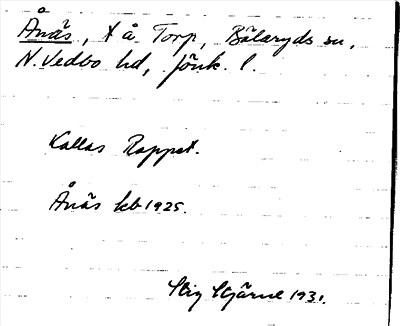 Ånäs, X å Torp, Bälaryds sn,
N. Vedbo hd, Jönk. l.
Kallas Roppet.
Ånäs kb 1925.
Stig Stjärne 1931.